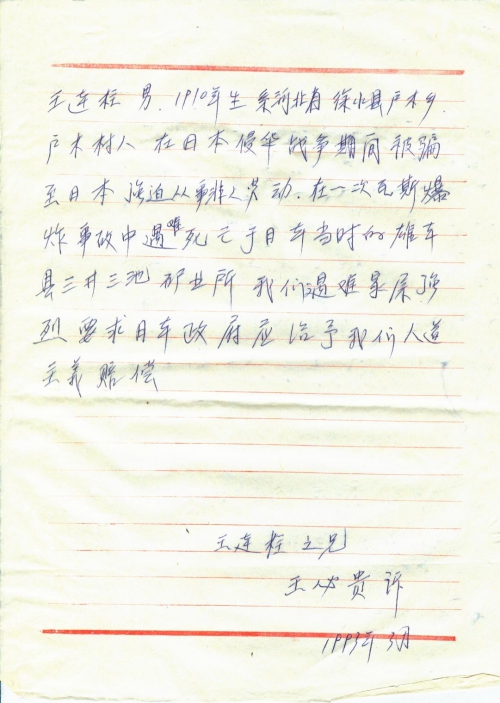 王连柱 男. 1910年生 系河北省 徐水县户木乡.
户木村人 在日本侵华战争期间 被骗
至日本 强迫从事非人劳动. 在一次瓦斯爆
炸事故中遇难死亡于日本当时的雄本
县三井三池矿业所 我们遇难家属强
烈要求日本政府应给予我们人道
主义赔偿
王连柱之兄
王必贵 诉
1993年3月